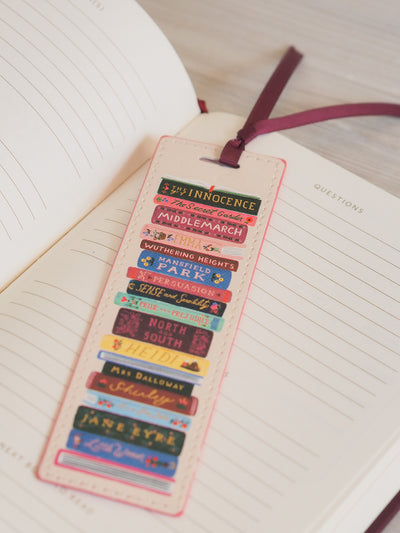 QUESTIONS
THE AGE of INNOCENCE
The Secret Garden
MIDDLEMARCH
EMMA
WUTHERING HEIGHTS
MANSFIELD
PARK
PERSUASION
SENSE and Sensibility
PRIDE and PREJUDICE
NORTH
and
SOUTH
HEIDI
MRS DALLOWAY
Shirley
JANE EYRE
Little Women
NEXT
TO READ